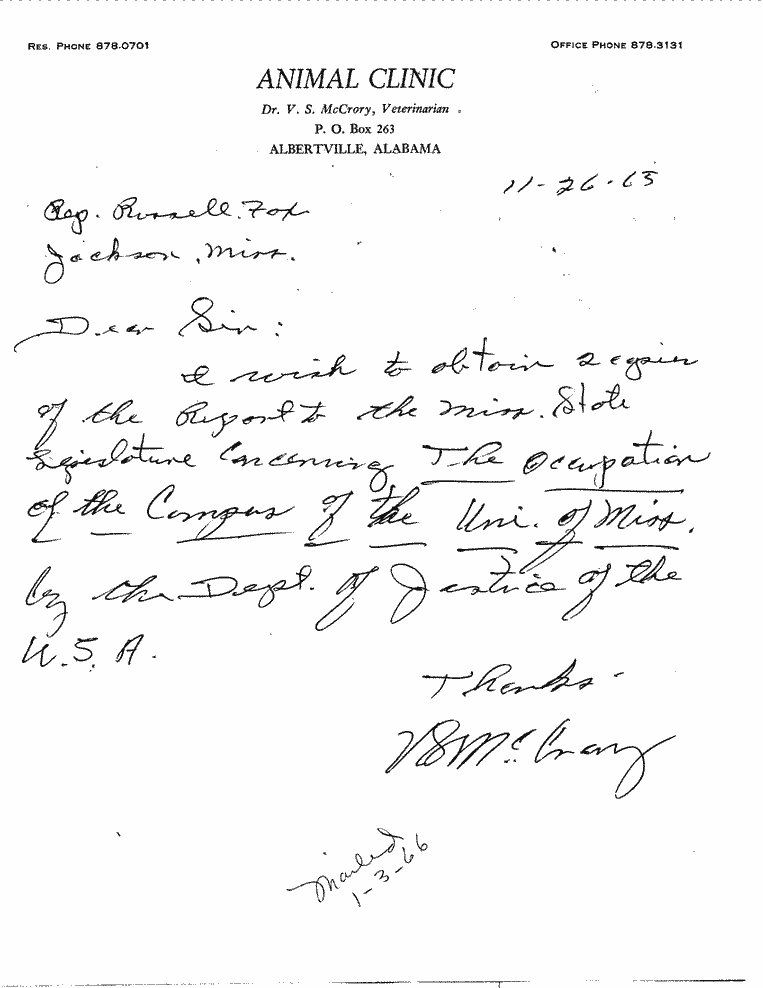 RES. PHONE 878-0701
OFFICE PHONE 878-3131
ANIMAL CLINIC
Dr. V. S. McCrory, Veterinarian
P. O. Box 263
ALBERTVILLE, ALABAMA
11-26-65
Rep. Russell Fox
Jackson, Miss.
Dear Sir:
I wish to obtain 2 copies
of the Report to the Miss. State
Legislature Concerning The Occupation
of the Campus of the Uni. of Miss.
by the Dept. of Justice of the
U.S.A.
Thanks-
VS McCrory
Mailed
1-3-66